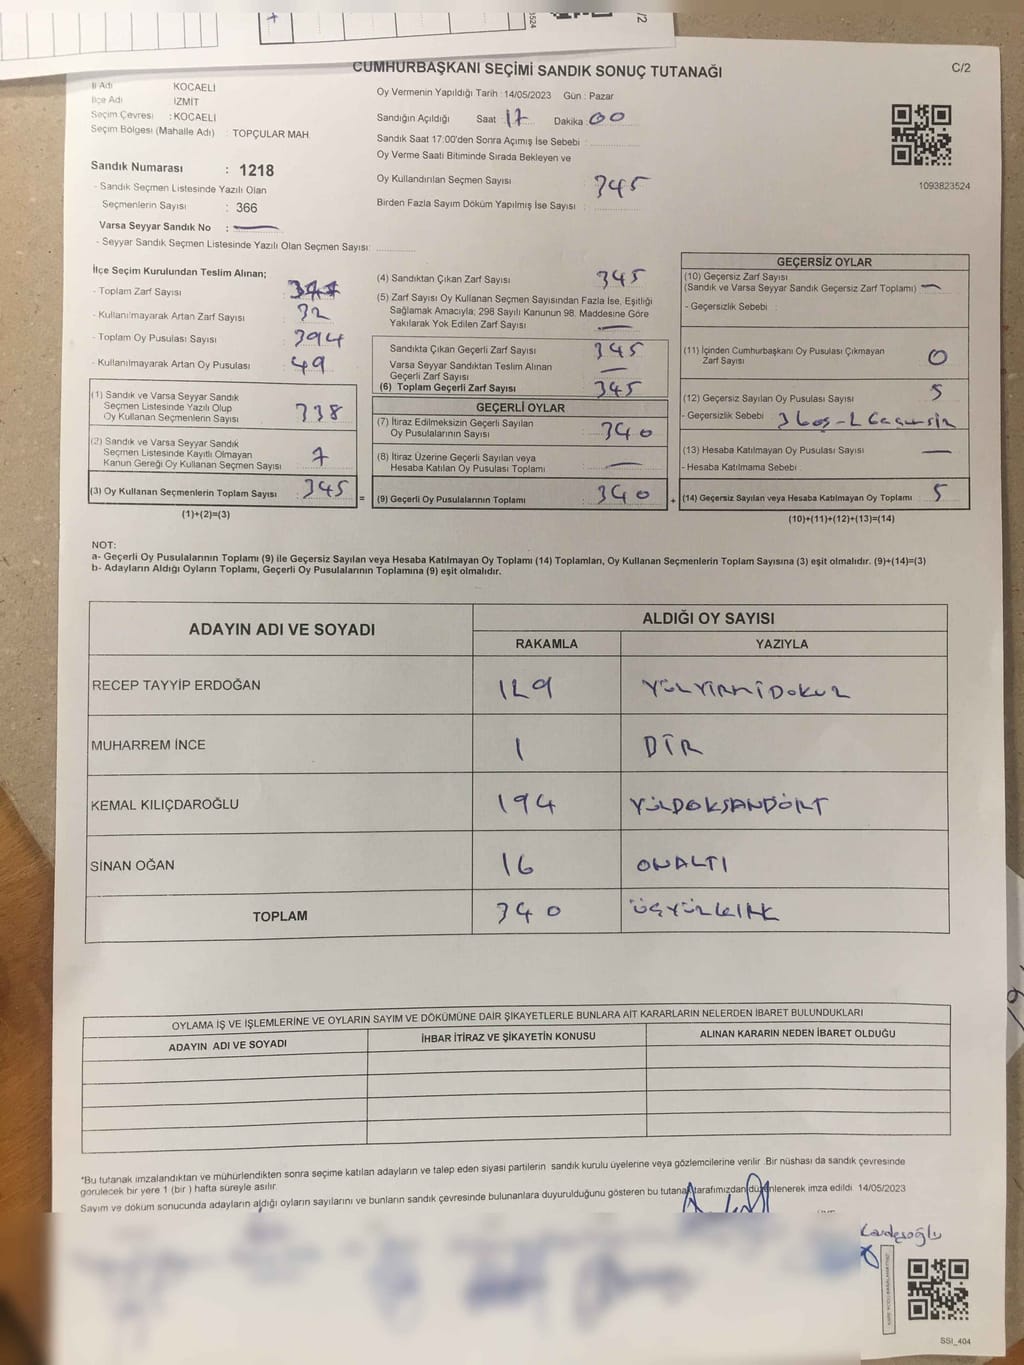 3524
/2
CUMHURBAŞKANI SEÇİMİ SANDIK SONUÇ TUTANAĞI
C/2
İl Adı KOCAELİ
İlçe Adı İZMİT
Seçim Çevresi : KOCAELİ
Seçim Bölgesi (Mahalle Adı) : TOPÇULAR MAH.
Oy Vermenin Yapıldığı Tarih : 14/05/2023 Gün : Pazar
Sandığın Açıldığı Saat : 17 Dakika : 00
Sandık Saat 17:00'den Sonra Açımış İse Sebebi :
Oy Verme Saati Bitiminde Sırada Bekleyen ve
Oy Kullandırılan Seçmen Sayısı : 345
Birden Fazla Sayım Döküm Yapılmış İse Sayısı :
1093823524
Sandık Numarası : 1218
- Sandık Seçmen Listesinde Yazılı Olan
Seçmenlerin Sayısı : 366
Varsa Seyyar Sandık No : —
- Seyyar Sandık Seçmen Listesinde Yazılı Olan Seçmen Sayısı:
İlçe Seçim Kurulundan Teslim Alınan;
- Toplam Zarf Sayısı
- Kullanılmayarak Artan Zarf Sayısı : 32
- Toplam Oy Pusulası Sayısı : 394
- Kullanılmayarak Artan Oy Pusulası : 49
(1) Sandık ve Varsa Seyyar Sandık
Seçmen Listesinde Yazılı Olup
Oy Kullanan Seçmenlerin Sayısı : 338
(2) Sandık ve Varsa Seyyar Sandık
Seçmen Listesinde Kayıtlı Olmayan
Kanun Gereği Oy Kullanan Seçmen Sayısı : 7
(3) Oy Kullanan Seçmenlerin Toplam Sayısı : 345
(1)+(2)=(3)
(4) Sandıktan Çıkan Zarf Sayısı : 345
(5) Zarf Sayısı Oy Kullanan Seçmen Sayısından Fazla İse, Eşitliği
Sağlamak Amacıyla; 298 Sayılı Kanunun 98. Maddesine Göre
Yakılarak Yok Edilen Zarf Sayısı : —
Sandıkta Çıkan Geçerli Zarf Sayısı : 345
Varsa Seyyar Sandıktan Teslim Alınan
Geçerli Zarf Sayısı : —
(6) Toplam Geçerli Zarf Sayısı : 345
GEÇERLİ OYLAR
(7) İtiraz Edilmeksizin Geçerli Sayılan
Oy Pusulalarının Sayısı : 340
(8) İtiraz Üzerine Geçerli Sayılan veya
Hesaba Katılan Oy Pusulası Toplamı : —
= (9) Geçerli Oy Pusulalarının Toplamı : 340 +
GEÇERSİZ OYLAR
(10) Geçersiz Zarf Sayısı
(Sandık ve Varsa Seyyar Sandık Geçersiz Zarf Toplamı) : —
- Geçersizlik Sebebi :
(11) İçinden Cumhurbaşkanı Oy Pusulası Çıkmayan
Zarf Sayısı : 0
(12) Geçersiz Sayılan Oy Pusulası Sayısı : 5
- Geçersizlik Sebebi : 3 boş - 2 Geçersiz
(13) Hesaba Katılmayan Oy Pusulası Sayısı : —
- Hesaba Katılmama Sebebi :
(14) Geçersiz Sayılan veya Hesaba Katılmayan Oy Toplamı : 5
(10)+(11)+(12)+(13)=(14)
NOT:
a- Geçerli Oy Pusulalarının Toplamı (9) ile Geçersiz Sayılan veya Hesaba Katılmayan Oy Toplamı (14) Toplamları, Oy Kullanan Seçmenlerin Toplam Sayısına (3) eşit olmalıdır. (9)+(14)=(3)
b- Adayların Aldığı Oyların Toplamı, Geçerli Oy Pusulalarının Toplamına (9) eşit olmalıdır.
ADAYIN ADI VE SOYADI
ALDIĞI OY SAYISI
RAKAMLA YAZIYLA
RECEP TAYYİP ERDOĞAN 129 YÜZYİRMİDOKUZ
MUHARREM İNCE 1 BİR
KEMAL KILIÇDAROĞLU 194 YÜZDOKSANDÖRT
SİNAN OĞAN 16 ONALTI
TOPLAM 340 ÜÇYÜZKIRK
OYLAMA İŞ VE İŞLEMLERİNE VE OYLARIN SAYIM VE DÖKÜMÜNE DAİR ŞİKAYETLERLE BUNLARA AİT KARARLARIN NELERDEN İBARET BULUNDUKLARI
ADAYIN ADI VE SOYADI İHBAR İTİRAZ VE ŞİKAYETİN KONUSU ALINAN KARARIN NEDEN İBARET OLDUĞU
*Bu tutanak imzalandıktan ve mühürlendikten sonra seçime katılan adayların ve talep eden siyasi partilerin sandık kurulu üyelerine veya gözlemcilerine verilir. Bir nüshası da sandık çevresinde
görülecek bir yere 1 (bir ) hafta süreyle asılır.
Sayım ve döküm sonucunda adayların aldığı oyların sayılarını ve bunların sandık çevresinde bulunanlara duyurulduğunu gösteren bu tutanak tarafımızdan düzenlenerek imza edildi. 14/05/2023
Kardeşoğlu
SSI_404